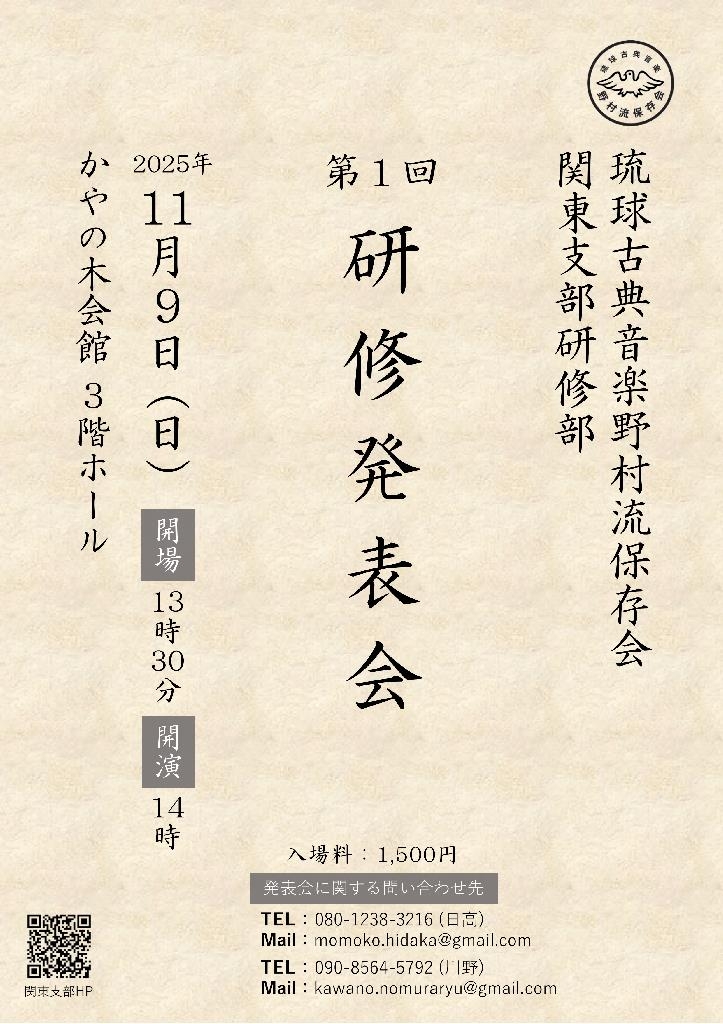 琉球古典音楽
野村流保存会
琉球古典音楽野村流保存会
関東支部研修部
第1回
研修発表会
2025年
11月9日（日）
開場
13時30分
開演
14時
かやの木会館 3階ホール
入場料：1,500円
発表会に関する問い合わせ先
TEL：080-1238-3216（日高）
Mail：momoko.hidaka@gmail.com
TEL：090-8564-5792（川野）
Mail：kawano.nomuraryu@gmail.com
関東支部HP